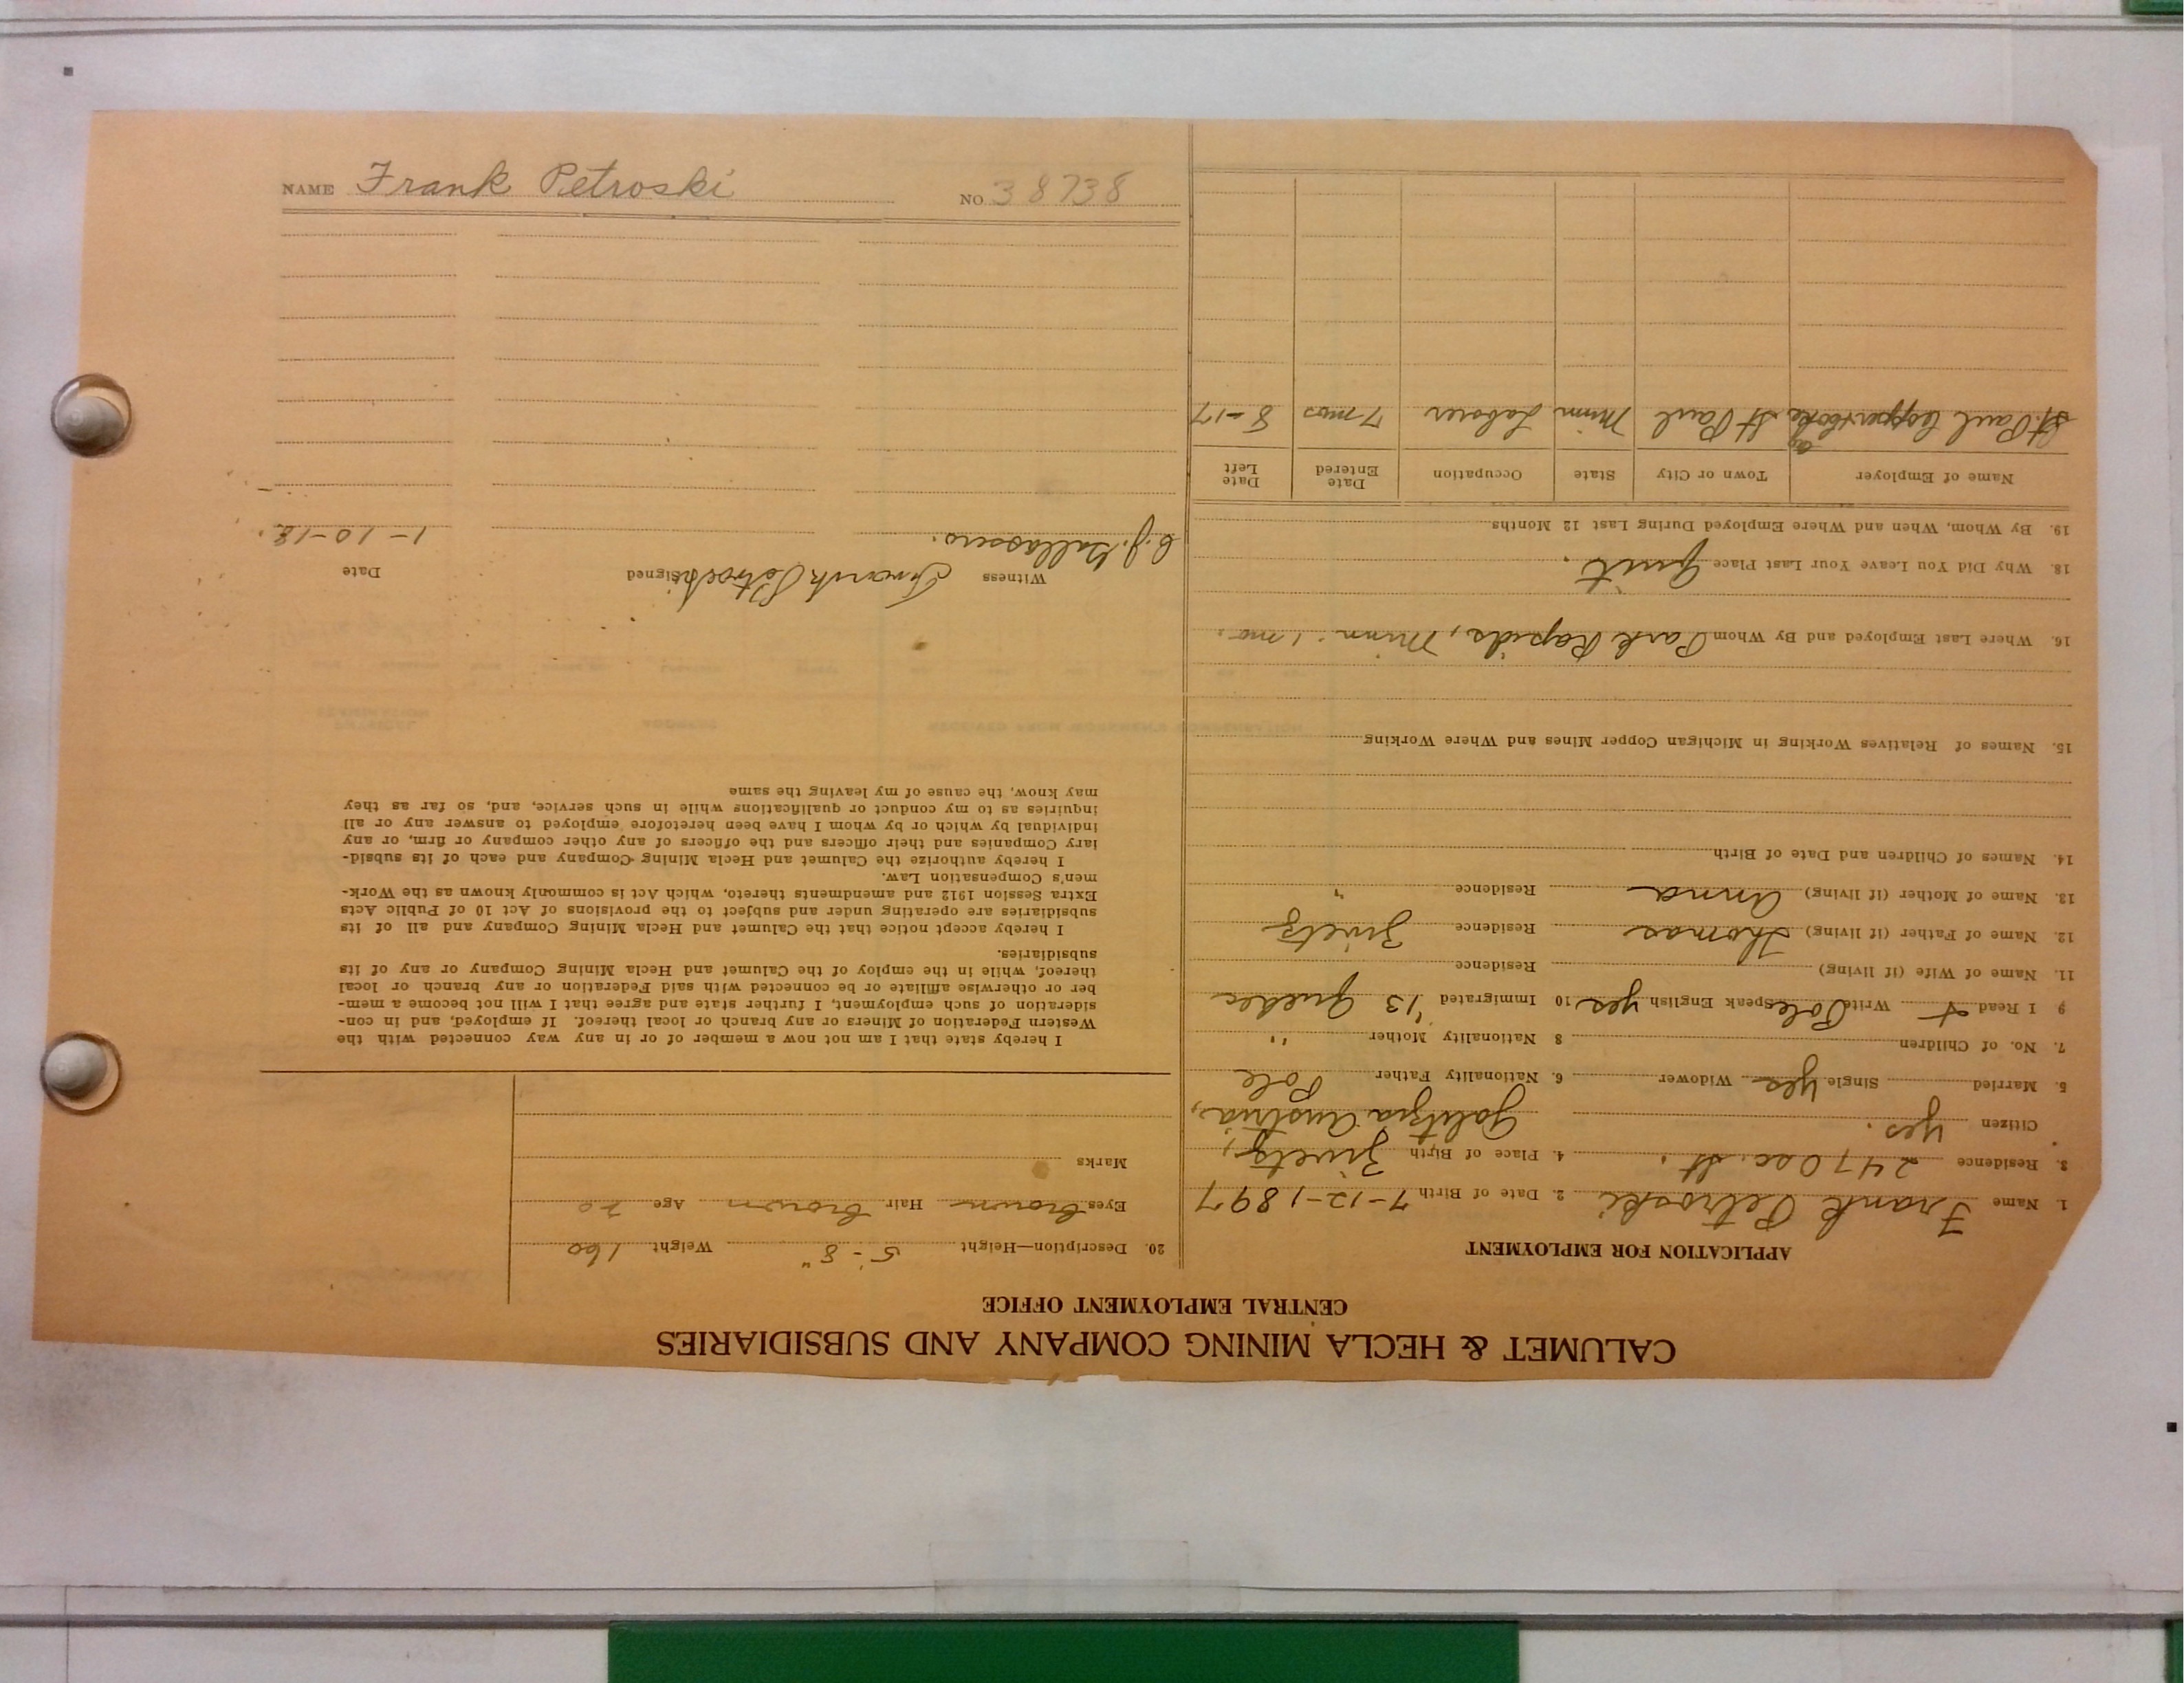 CALUMET & HECLA MINING COMPANY AND SUBSIDIARIES
CENTRAL EMPLOYMENT OFFICE
APPLICATION FOR EMPLOYMENT
1. Name Frank Petroski 2. Date of Birth 7-12-1897
3. Residence 2470 sc. St. 4. Place of Birth Zivetz,
Citizen yes. Galitzia Austria,
5. Married Single yes Widower 6. Nationality Father Pole
7. No. of Children 8 Nationality Mother "
9 I Read + Write Pole Speak English yes 10 Immigrated '13 Quebec
11. Name of Wife (if living) Residence
12. Name of Father (if living) Thomas Residence Zivetz
13. Name of Mother (if living) Anna Residence "
14. Names of Children and Date of Birth
15. Names of Relatives Working in Michigan Copper Mines and Where Working
16. Where Last Employed and By Whom Park Rapids, Minn. 1 mo.
18. Why Did You Leave Your Last Place Quit.
19. By Whom, When and Where Employed During Last 12 Months
Name of Employer Town or City State Occupation Date Entered Date Left
St. Paul St Paul Minn Laborer 7 mos 8-17
20. Description—Height 5'-8" Weight 160
Eyes brown Hair brown Age 20
Marks
I hereby state that I am not now a member of or in any way connected with the
Western Federation of Miners or any branch or local thereof. If employed, and in con-
sideration of such employment, I further state and agree that I will not become a mem-
ber or otherwise affiliate or be connected with said Federation or any branch or local
thereof, while in the employ of the Calumet and Hecla Mining Company or any of its
subsidiaries.
I hereby accept notice that the Calumet and Hecla Mining Company and all of its
subsidiaries are operating under and subject to the provisions of Act 10 of Public Acts
Extra Session 1912 and amendments thereto, which Act is commonly known as the Work-
men's Compensation Law.
I hereby authorize the Calumet and Hecla Mining Company and each of its subsid-
iary Companies and their officers and the officers of any other company or firm, or any
individual by which or by whom I have been heretofore employed to answer any or all
inquiries as to my conduct or qualifications while in such service, and, so far as they
may know, the cause of my leaving the same
Witness Signed Frank Petroski Date
1-10-18.
NAME Frank Petroski NO. 38738